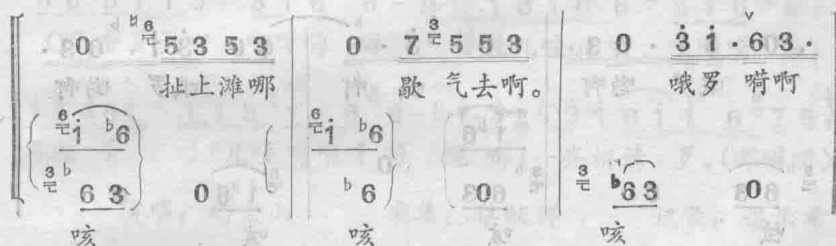 0 ♮6 5 3 5 3 0 · 7 3 5 5 3 0 3̇ i̇ · 6 3 ·
扯上滩哪 歇 气去啊。 哦罗 嗬啊
6 i̇ ♭6 6 i̇ ♭6
3 ♭6 3 0 ♭6 0 3 ♭6 3 0
咳 咳 咳